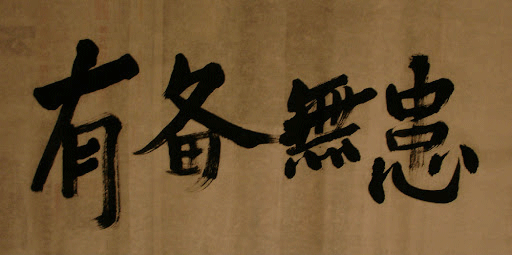 有备無患